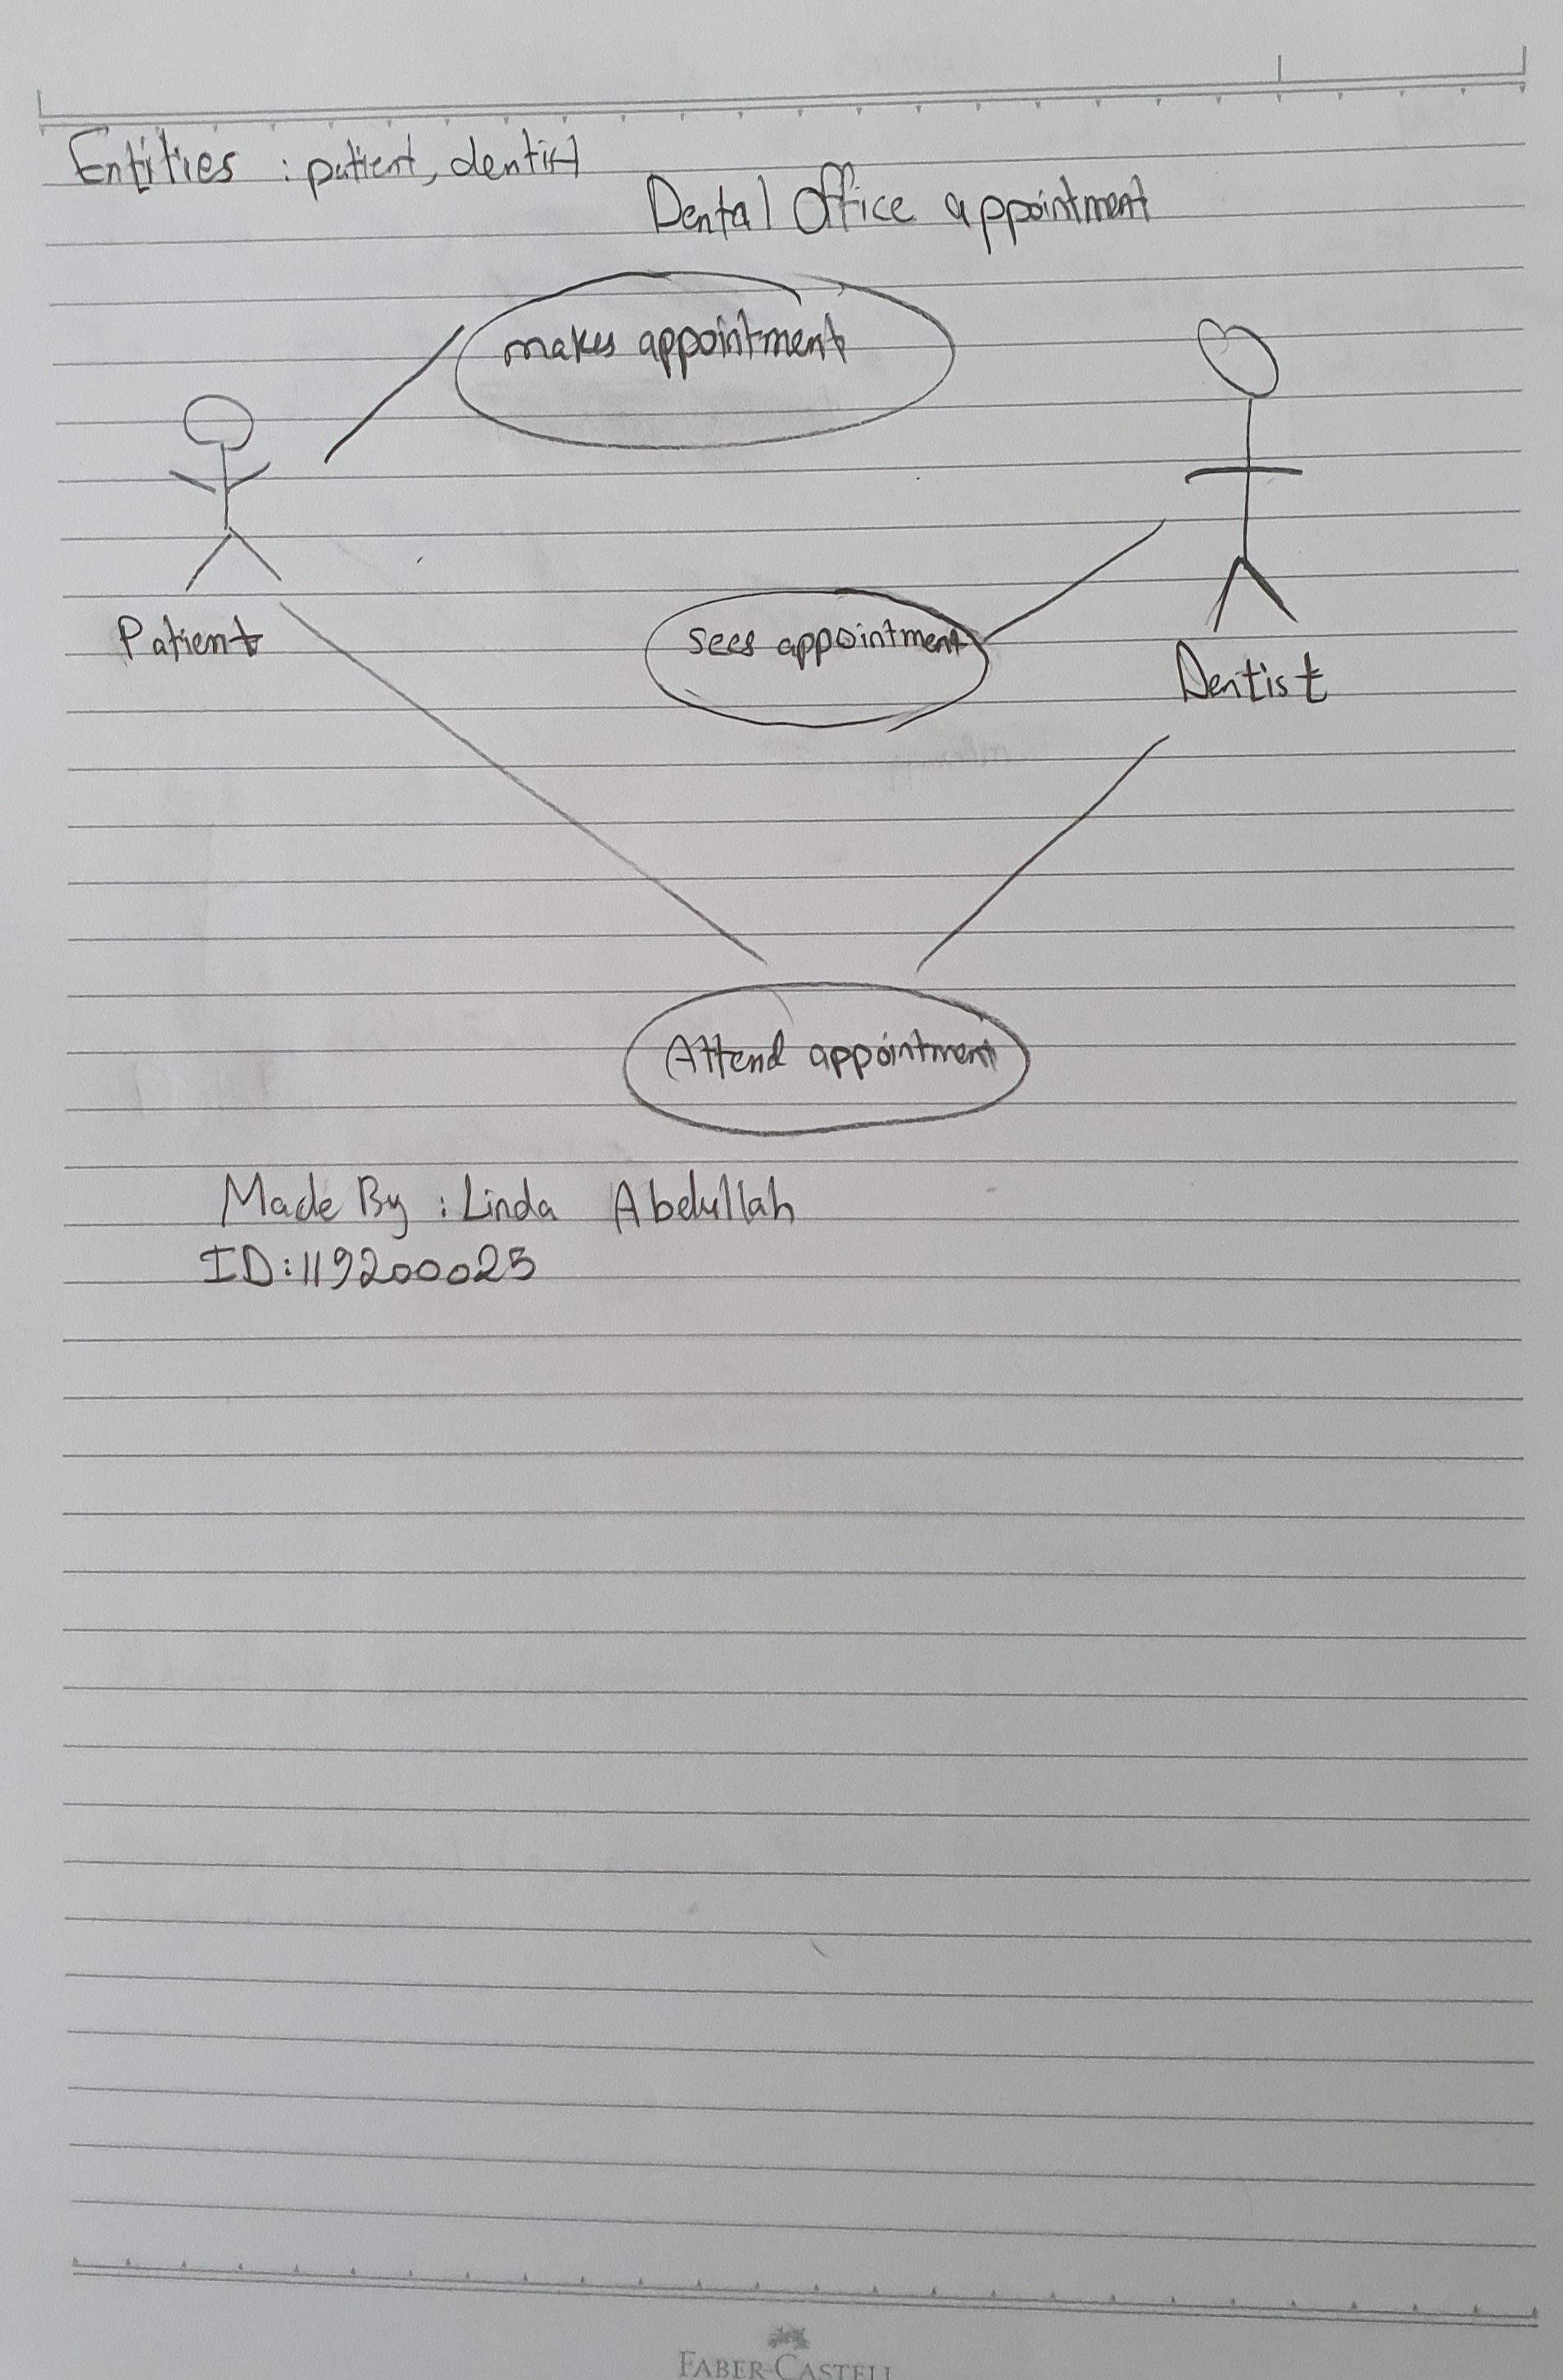 Entities : patient, dentist
Dental Office appointment
makes appointment
Patient
sees appointment
Dentist
Attend appointment
Made By : Linda Abdullah
ID:119200025
FABER-CASTELL